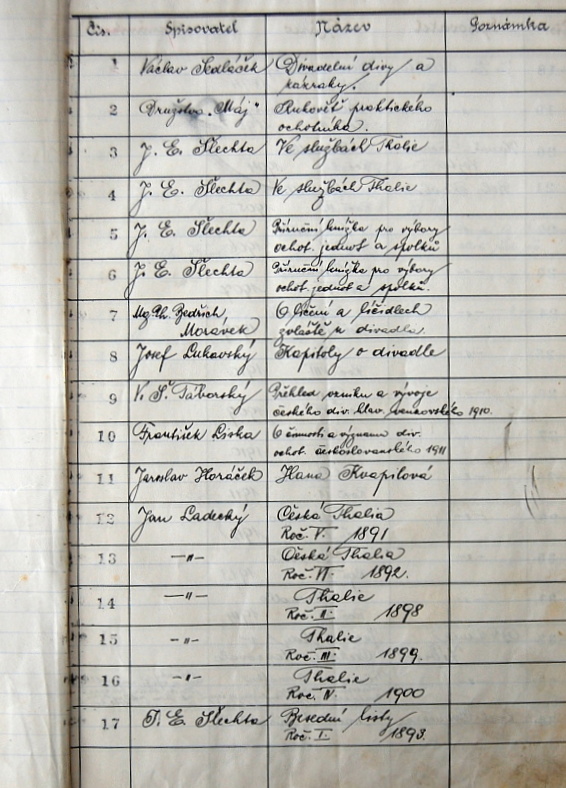 Čís. Spisovatel Název Poznámka
1 Václav Sedláček Divadelní divy a
zázraky.
2 Družstvo „Máj“ Rukověť praktického
ochotníka.
3 J. E. Šlechta Ve službách Thalie
4 J. E. Šlechta Ve službách Thalie
5 J. E. Šlechta Příruční knížka pro výbory
ochot. jednot a spolků
6 J. E. Šlechta Příruční knížka pro výbory
ochot. jednot a spolků.
7 Mg. Ph. Bedřich O líčení a líčidlech
Moravek zvláště u divadla.
8 Josef Lukavský Kapitoly o divadle
9 V. Š. Táborský Přehled vzniku a vývoje
českého div. hlav. venkovského 1910.
10 František Liska O činnosti a významu div.
ochot. českoslovanského 1911
11 Jaroslav Horáček Hana Kvapilová
12 Jan Ladecký Česká Thalia
Roč. V. 1891
13 —„— Česká Thalia
Roč. VI. 1892.
14 —„— Thalie
Roč. II. 1898
15 -„- Thalie
Roč. III. 1899.
16 -„- Thalie
Roč. IV. 1900
17 J. E. Šlechta Besední listy
Roč. I. 1893.